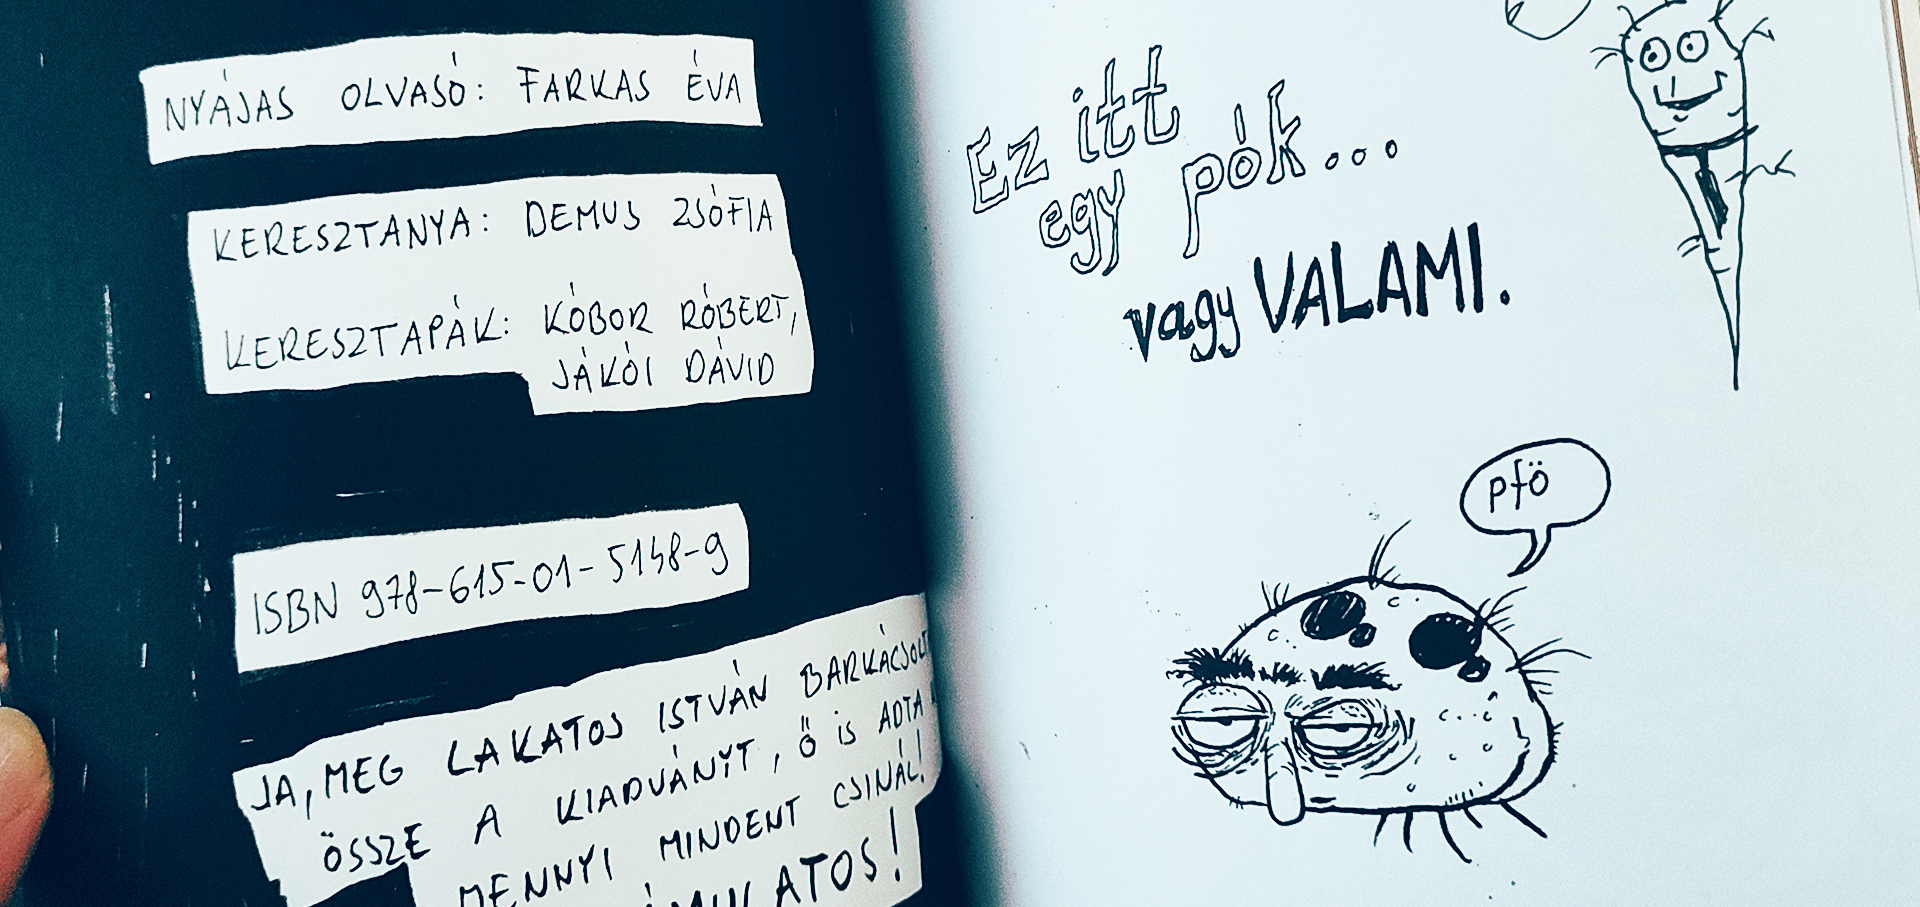 NYÁJAS OLVASÓ: FARKAS ÉVA
KERESZTANYA: DEMUS ZSÓFIA
KERESZTAPÁK: KÓBOR RÓBERT,
JÁKÓI DÁVID
ISBN 978-615-01-5148-9
JA, MEG LAKATOS ISTVÁN BARKÁCSOLT
ÖSSZE A KIADVÁNYT, Ő IS ADTA
MENNYI MINDENT CSINÁL!
Ez itt
egy pók...
vagy VALAMI.
pfö